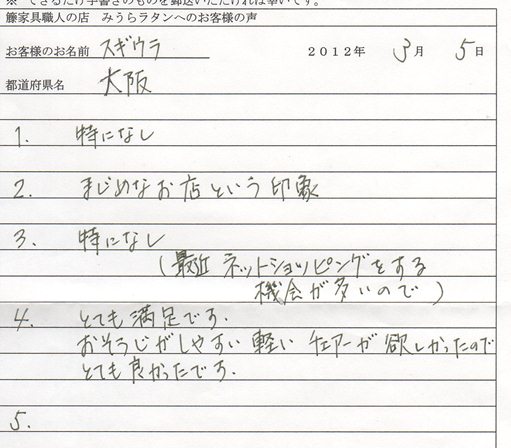 ※ できるだけ手書きのものを郵送いただければ幸いです。
籐家具職人の店　みうらラタンへのお客様の声
お客様のお名前　スギウラ　２０１２年　3月　5日
都道府県名　大阪
1.　特になし
2.　まじめなお店という印象
3.　特になし
(最近 ネットショッピングをする
機会が多いので)
4.　とても満足です.
おそうじがしやすい 軽い チェアーが 欲しかったので
とても良かったです.
5.